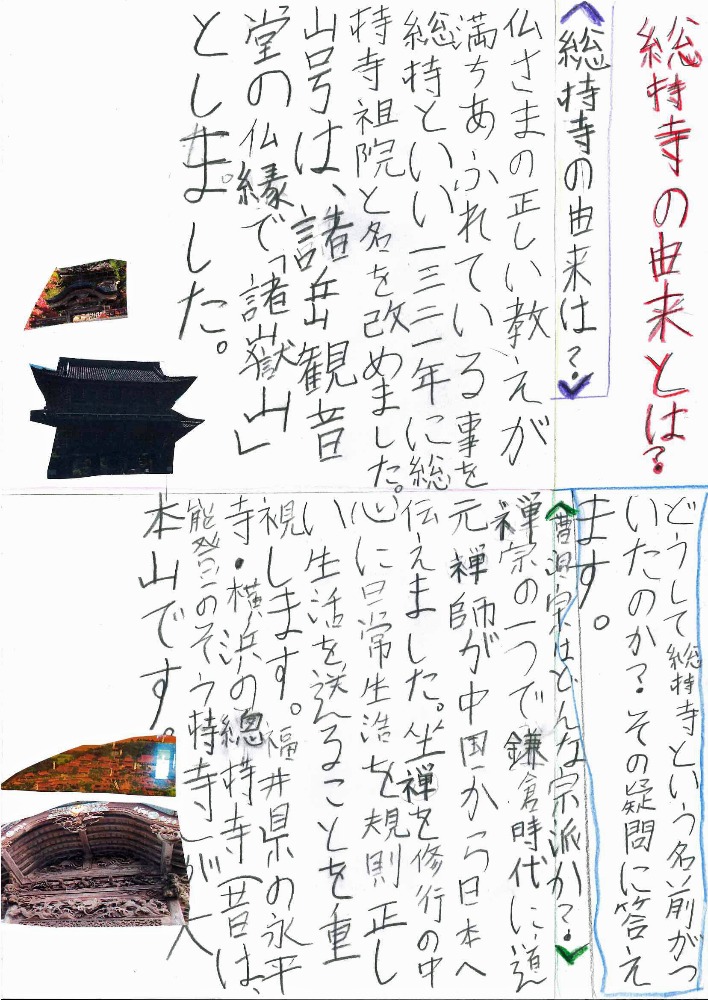 総持寺の由来とは?
どうして総持寺という名前がつ
いたのか?その疑問に答え
ます。
総持寺の由来は?
仏さまの正しい教えが
満ちあふれている事を
総持といい一三二一年に総
持寺祖院と名を改めました。
山号は、諸岳観音
堂の仏縁で「諸嶽山」
としました。
曹洞宗はどんな宗派か?
禅宗の一つで鎌倉時代に道
元禅師が中国から日本へ
伝えました。坐禅を修行の中
心に日常生活を規則正し
い生活を送ることを重
視します。福井県の永平
寺・横浜の總持寺(昔は、
能登のそう持寺)が大
本山です。